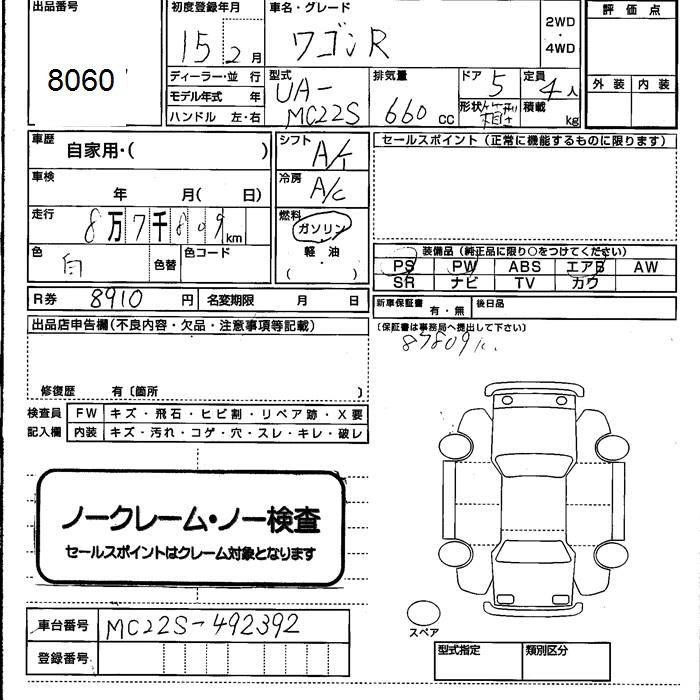 出品番号 初度登録年月 車名・グレード 評価点
8060 15 2月 ワゴンR 2WD・4WD
ディーラー・並行 型式 排気量 ドア 定員 外装 内装
モデル年式 年 UA- 5 4人
ハンドル 左・右 MC22S 660cc 形状 箱型 積載 kg
車歴 自家用・( ) シフト A/T セールスポイント(正常に機能するものに限ります)
車検 年 月( 日) 冷房 A/C
走行 8万7千809km 燃料 ガソリン
色 白 色替 色コード 軽油 ( )
装備品(純正品に限り○をつけてください)
PS PW ABS エアB AW
SR ナビ TV カワ
R券 8910円 名変期限 月 日 新車保証書 有・無 後日品
出品店申告欄(不良内容・欠品・注意事項等記載) (保証書は事務局へ提出して下さい)
87809
修復歴 有〔箇所 〕
検査員 FW キズ・飛石・ヒビ割・リペア跡・X要
記入欄 内装 キズ・汚れ・コゲ・穴・スレ・キレ・破レ
ノークレーム・ノー検査
セールスポイントはクレーム対象となります
車台番号 MC22S-492392
スペア
登録番号 型式指定 類別区分